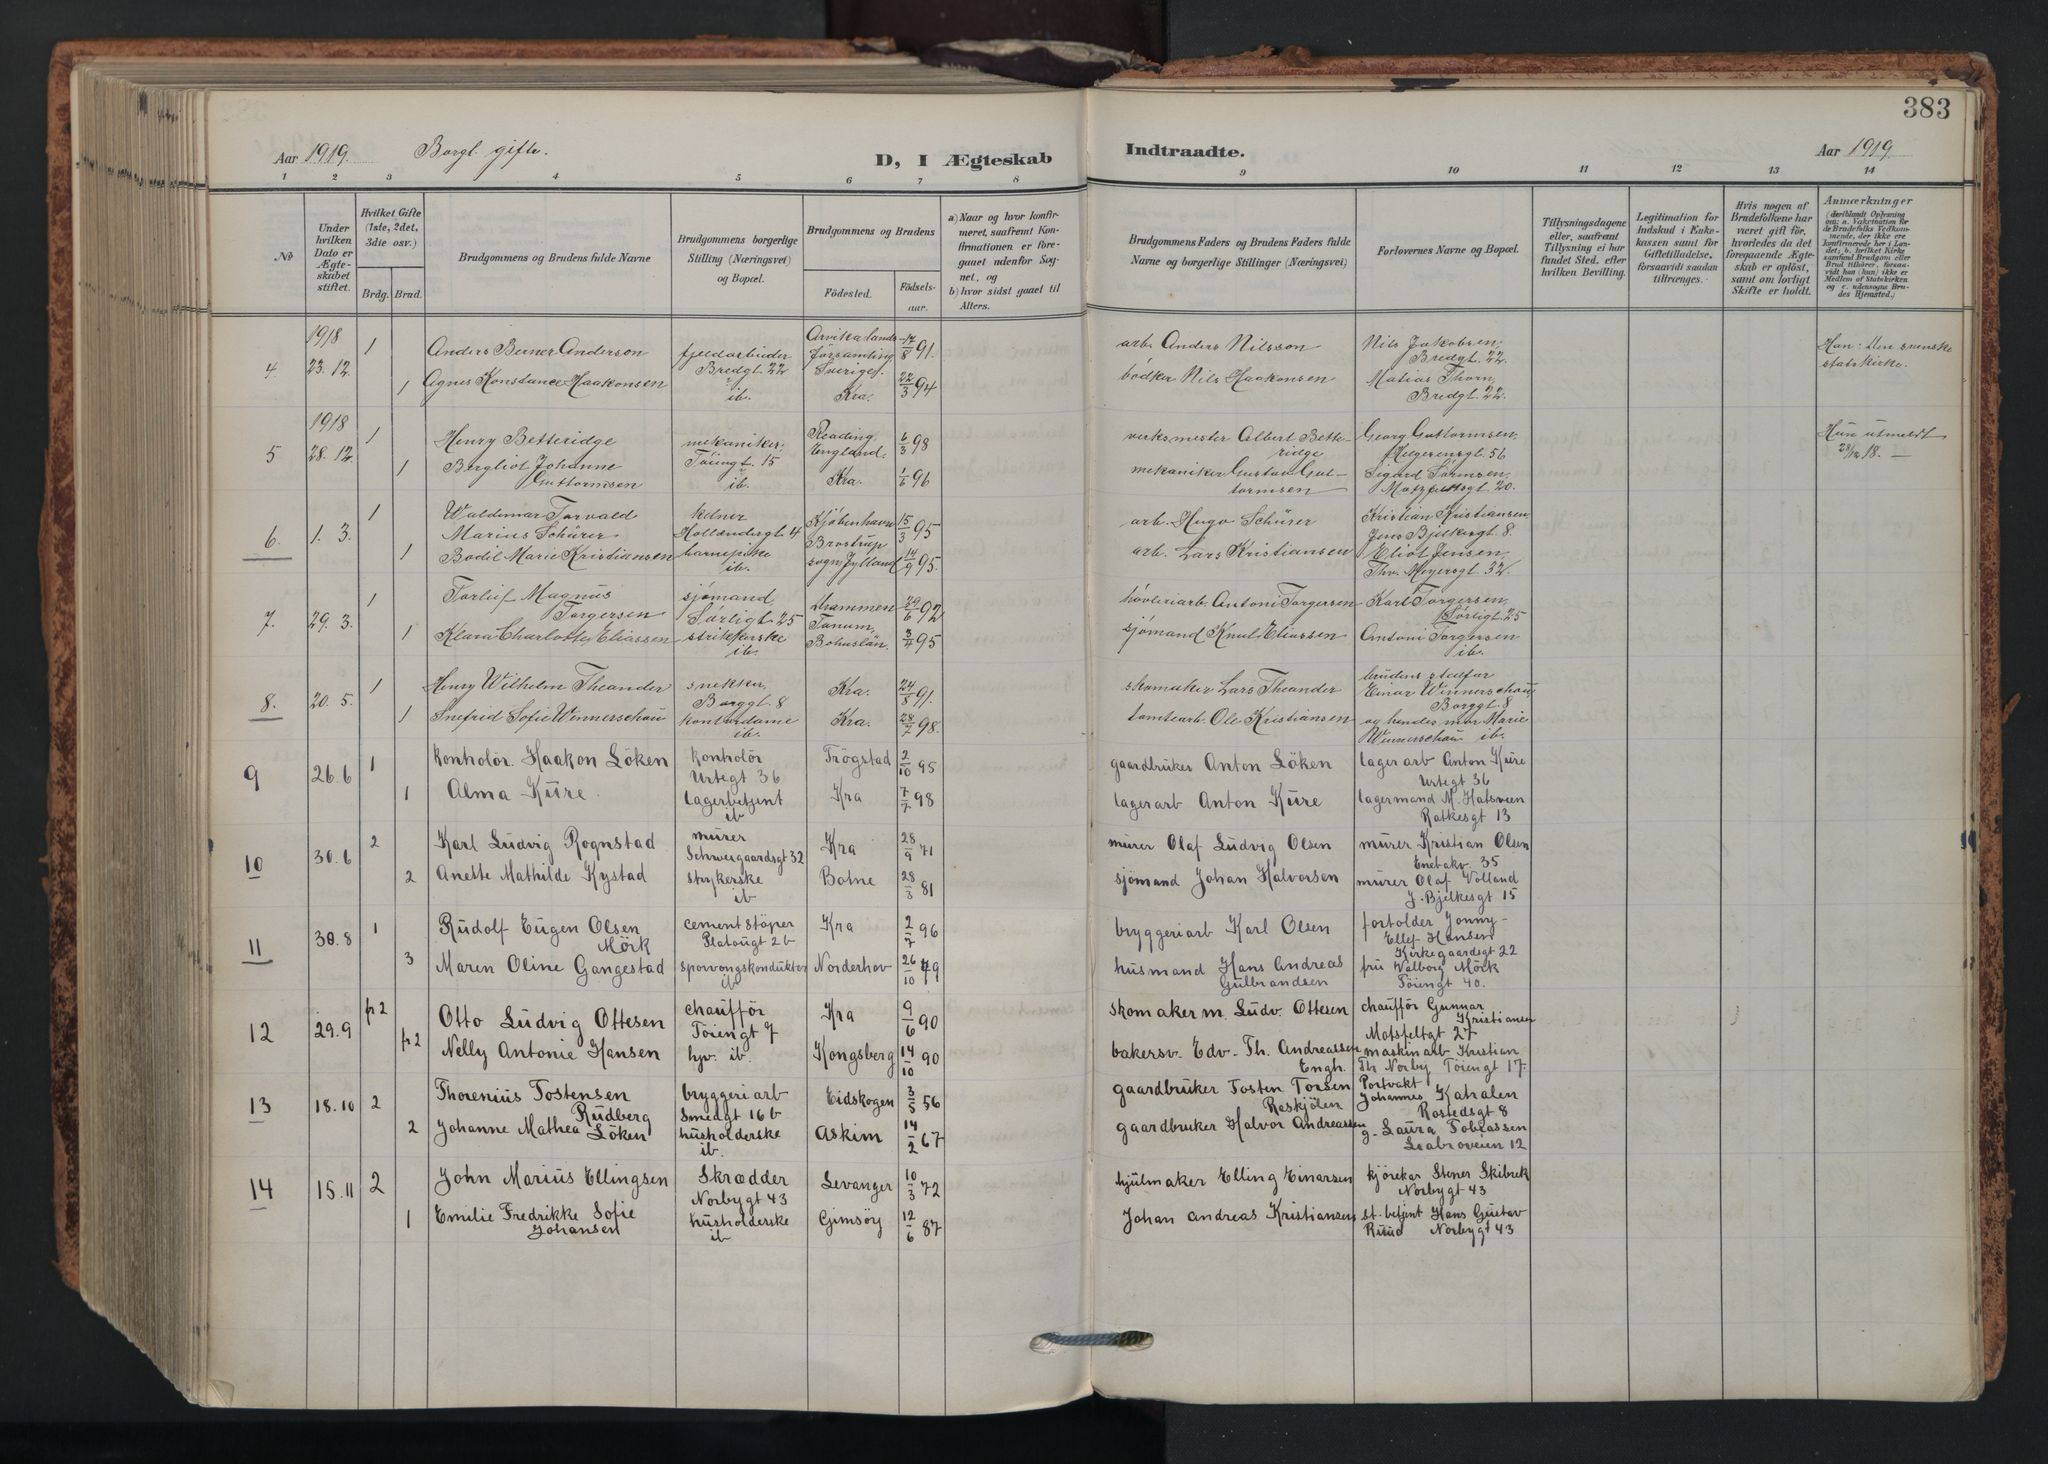 383
Aar 1919. Borgl. gifte. D, I Ægteskab
Indtraadte. Aar 1919
1 2 3 4 5 6 7 8 9 10 11 12 13 14
No
Under hvilken Dato er Ægteskabet stiftet.
Hvilket Gifte (1ste, 2det, 3die osv.)
Brdg. Brud.
Brudgommens og Brudens fulde Navne
Brudgommens borgerlige Stilling (Næringsvei) og Bopæl.
Brudgommens og Brudens
Fødested. Fødselsaar.
a) Naar og hvor konfirmeret, saafremt Konfirmationen er foregaaet udenfor Sognet, og
b) hvor sidst gaaet til Alters.
Brudgommens Faders og Brudens Faders fulde Navne og borgerlige Stillinger (Næringsvei)
Forlovernes Navne og Bopæl.
Tillysningsdagene eller, saafremt Tillysning ei har fundet Sted, efter hvilken Bevilling.
Legitimation for Indskud i Enkekassen samt for Giftetilladelse, forsaavidt saadan tiltrænges.
Hvis nogen af Brudefolkene har været gift før, hvorledes da det foregaaende Ægteskab er opløst, samt om lovligt Skifte er holdt.
Anmærkninger
(deriblandt Oplysning om: a. Vakcination for de Brudefolks Vedkommende, der ikke ere konfirmerede her i Landet; b. hvilket Kirkesamfund Brudgom eller Brud tilhører, forsaavidt han (hun) ikke er Medlem af Statskirken og c. udensogns Brudes Hjemsted.)
4 1918 23. 12. 1 Anders Berner Anderson fjeldarbeider Bredgt. 22 Arvika landsförsamling Sverige. 17/8 91. arb. Anders Nilsson Nils Jakobsen, Bredgt. 22 Han: Den svenske statskirke.
1 Agnes Konstance Haakonsen ib. Kra. 22/3 94 bödker Nils Haakonsen Matias Thorn, Bredgt. 22.
5 1918 28. 12. 1 Henry Betteridge mekaniker, Töiengt. 15 Reading England. 6/3 98 verksmester Albert Betteridge Georg Guttormsen, Hegermsgt. 56 Hun utmeldt 28/12 18. —
1 Bergliot Johanne Guttormsen ib. Kra. 1/6 96 mekaniker Gustav Guttormsen Sigurd Sörmsen, Motzfeldtsgt. 20.
6. 1. 3. 1 Waldemar Torvald Marius Schürer kelner Hollændergt. 4 Kjöbenhavn 15/3 95 arb. Hugo Schürer Kristian Kristiansen, Jens Bjelkesgt. 8.
1 Bodil Marie Kristiansen barnepike ib. Brostrup sogn Jylland 14/9 95. arb. Lars Kristiansen Eliot Jensen, Thv. Meyersgt. 32.
7. 29. 3. 1 Torleif Magnus Torgersen sjömand Sörligt. 25 Drammen 29/6 92 hövleriarb. Antoni Torgersen Karl Torgersen, Sörligt. 25
1 Klara Charlotte Eliassen strikkerske ib. Tanum, Bohuslän. 3/4 95 sjömand Knut Eliassen Antoni Torgersen ib.
8. 20. 5. 1 Henry Wilhelm Theander snekker, Borggt. 8 Kra. 24/8 91. skomaker Lars Theander brudens stedfar Einar Winnerschau Borggt. 8
1 Snefrid Sofie Winnerschau kontordame ib. Kra. 28/7 98. tomtearb. Ole Kristiansen og hendes mor Marie Winnerschau ib.
9 26.6 1 kontrolör. Haakon Löken kontrolör Urtegt 36 Trögstad 2/10 95 gaardbruker Anton Löken lager arb Anton Kure Urtegt 36
1 Alma Kure. lagerbetjent ib Kra 7/7 98 lagerarb Anton Kure lagermand M. Hatsveen Ratkesgt 13
10 30.6 2 Karl Ludvig Rognstad murer Schweigaardsgt 32 Kra 28/9 71 murer Olaf Ludvig Olsen murer Kristian Olsen Enebakv. 35
2 Anette Mathilde Kystad strykerske ib Botne 28/3 81 sjömand Johan Halvorsen murer Olaf Volland J. Bjelkesgt 15
11 30.8 1 Rudolf Eugen Olsen Mörk cementstöper Platougt 2b Kra 2/7 96 bryggeriarb Karl Olsen forholder Jonny Ellef Hansen Kirkegaardsgt 22
3 Maren Oline Gangestad sporvongskonduktör ib Norderhov 26/10 79 husmand Hans Andreas Gulbrandsen fru Valborg Mörk Töiengt 40.
12 29.9 fr 2 Otto Ludvig Ottesen chaufför Töiengt 9 Kra 9/6 90 skomaker m. Ludv. Ottesen chaufför Gunnar Kristiansen Motsfeltgt 27
fr 2 Nelly Antonie Hansen hjv. ib. Kongsberg 14/10 90 bakersv. Edv. Th. Andreassen Engh. maskinarb Kristian Th Norby Töiengt 17.
13 18.10 2 Thorenius Tostensen Rudberg bryggeriarb Smedgt 16b Eidskogen 3/5 56 gaardbruker Tosten Torsen Raskjölen Portvakt Johannes Kahalen Rostedsgt 8
2 Johanne Mathea Löken husholderske ib. Askim 14/2 67 gaardbruker Halvor Andreassen g. Laura Tobiassen Ljabroveien 12
14 15.11 2 John Marius Ellingsen Skrædder Norbygt 43 Levanger 10/3 72 hjulmaker Elling Einarsen kjörekar Stener Skibrek Norbygt 43
1 Emilie Fredrikke Sofie Johansen husholderske ib Gimsöy 12/6 87 Johan Andreas Kristiansen st. betjent Hans Gustav Ruud Norbygt 43